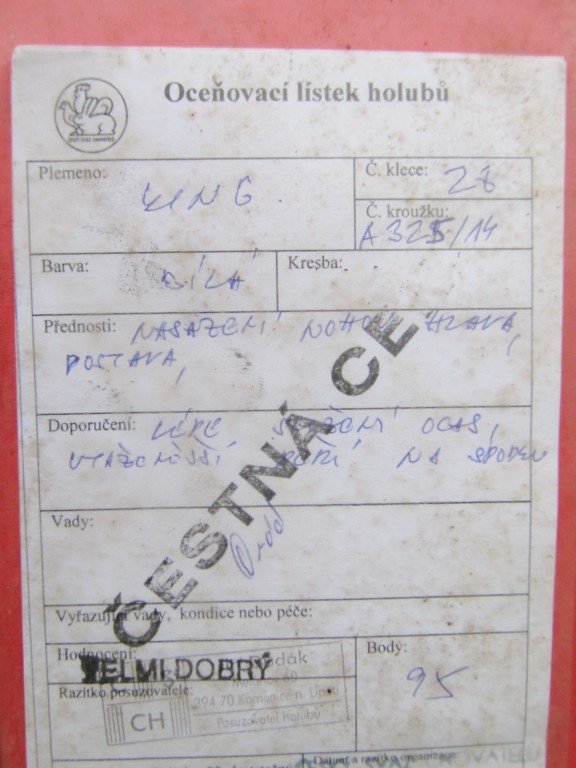 Oceňovací lístek holubů
Plemeno: KING
Č. klece: 28
Č. kroužku:
A 325/14
Barva: BÍLÁ
Kresba:
Přednosti: NASAZENÍ NOHOU, HLAVA,
POSTAVA,
Doporučení: LÉPE OCAS,
NA SPODKU
Vady:
Vyřazující vady, kondice nebo péče:
ČESTNÁ CE
Hodnocení:
VELMI DOBRÝ
Body:
95
Razítko posuzovatele:
394 70 Kamenice n. Lipou
CH
Posuzovatel holubů
Datum a razítko organizace